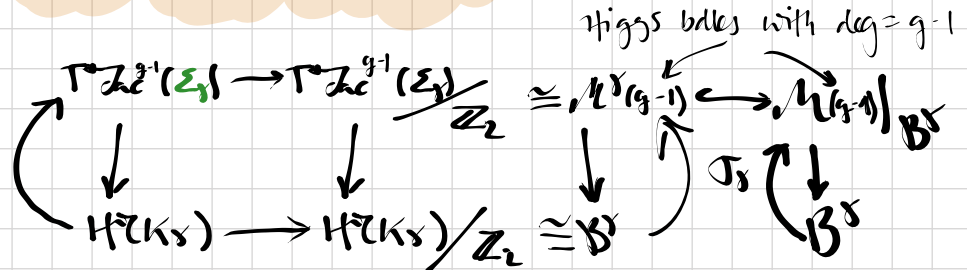 Higgs bdles with deg = g-1
T*Jac^{g-1}(Σ_γ) → T*Jac^{g-1}(Σ_γ)/ℤ_2 ≅ M^γ(g-1) ↔ M(g-1)|_{B^γ}
σ_γ
H^0(K_γ) → H^0(K_γ)/ℤ_2 ≅ B^γ B^γ